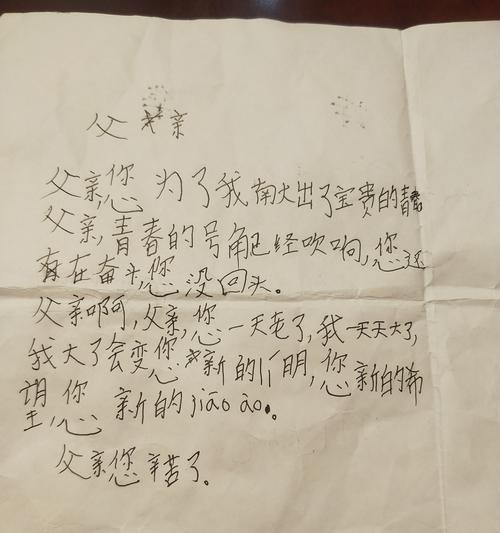 父亲
父亲,您为了我献出了宝贵的青春
父亲,青春的号角已经吹响,您还
有在奋斗,您没回头。
父亲啊,父亲,您一天老了,我一天天大了,
我大了会变您新的门明,您新的希
望,您新的jiāo ào。
父亲您辛苦了。